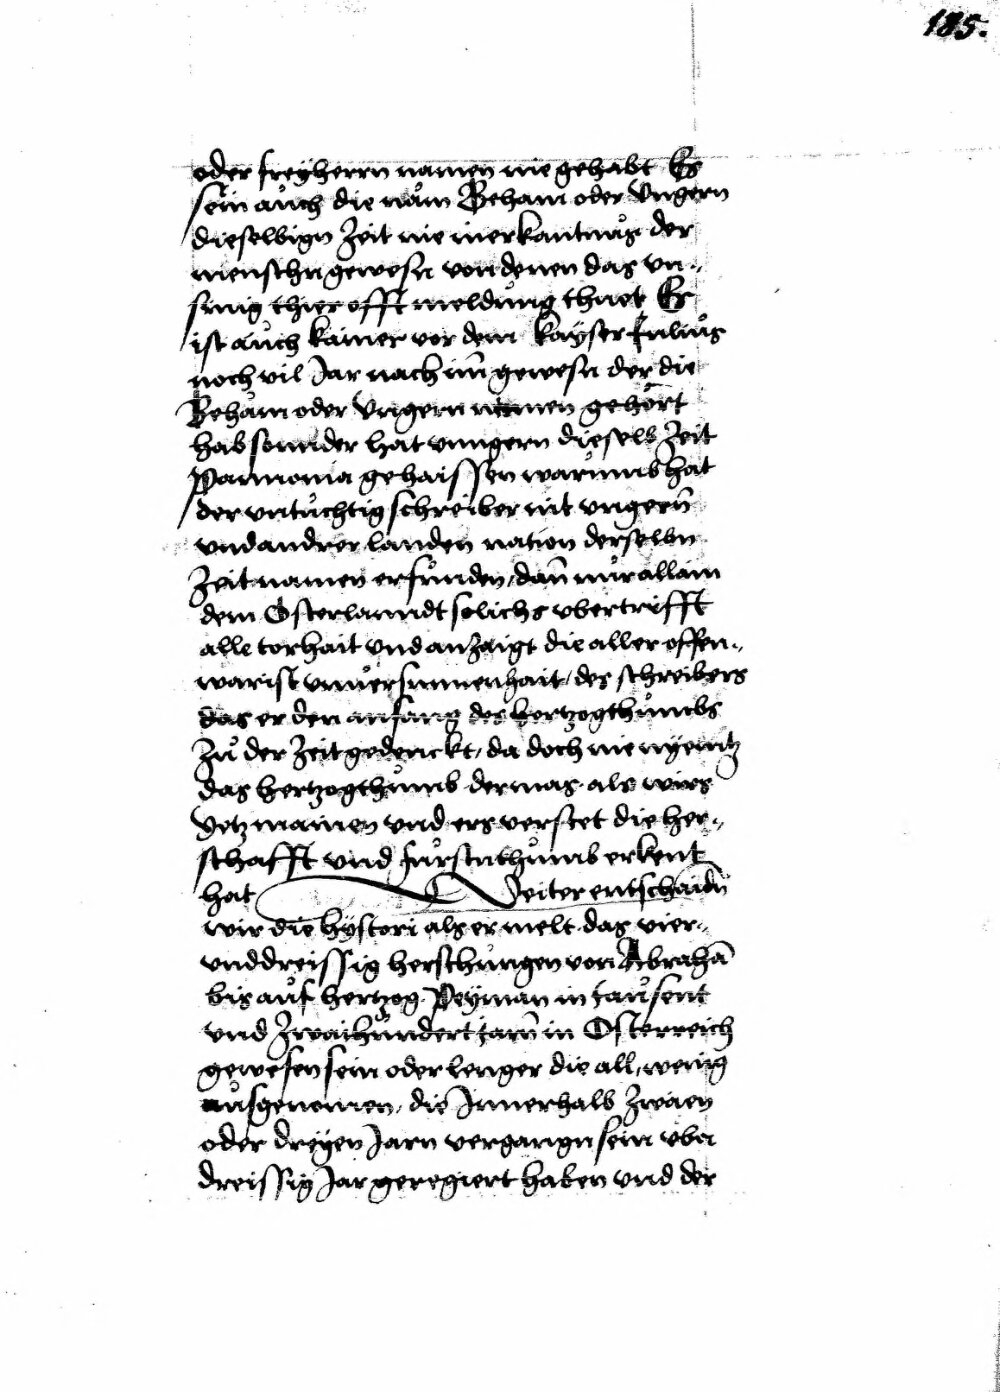 185.
oder freyherrn namen nie gehabt Es
sein auch die näm Beham oder Vngern
dieselbign Zeit nie in erkantnus der
menschn gewesn von denen das vn-
sinig thier offt meldung thuet Es
ist auch kainer vor dem kayser Julius
noch vil Jar nach im gewesn der die
Beham oder Vngern namen gehört
hab sonnder hat vnngern dieselb Zeit
Pannonia gehaissen warumb hat
der vntuchtig schreiber nit vngern
vnd andrer landen nation derselbn
Zeit namen erfunden, dan nur allain
dem Osterlanndt solichs vbertrifft
alle torhait vnd anzaigt die aller offen-
warist vnuersunnenhait, des schreibers
das er den anfang des hertzogthumbs
Zu der Zeit gedenckt, da doch nie nyemtz
das hertzogthumb dermas als wirs
yetz mainen vnd ers verstet die her-
schafft vnd furstnthumb erkent
hat Weiter entschaidn
wir die hystori als er melt das vier-
vnddreissig herschungen von Abrahā
bis auf hertzog Peyman in tausent
vnd Zwaihundert jarn in Osterreich
gewesen sein oder lenger die all, wenig
ausgenomen, die Innerhalb Zwaen
oder dreyen Jarn vergangn sein vber
dreissig Jar geregiert haben vnd der